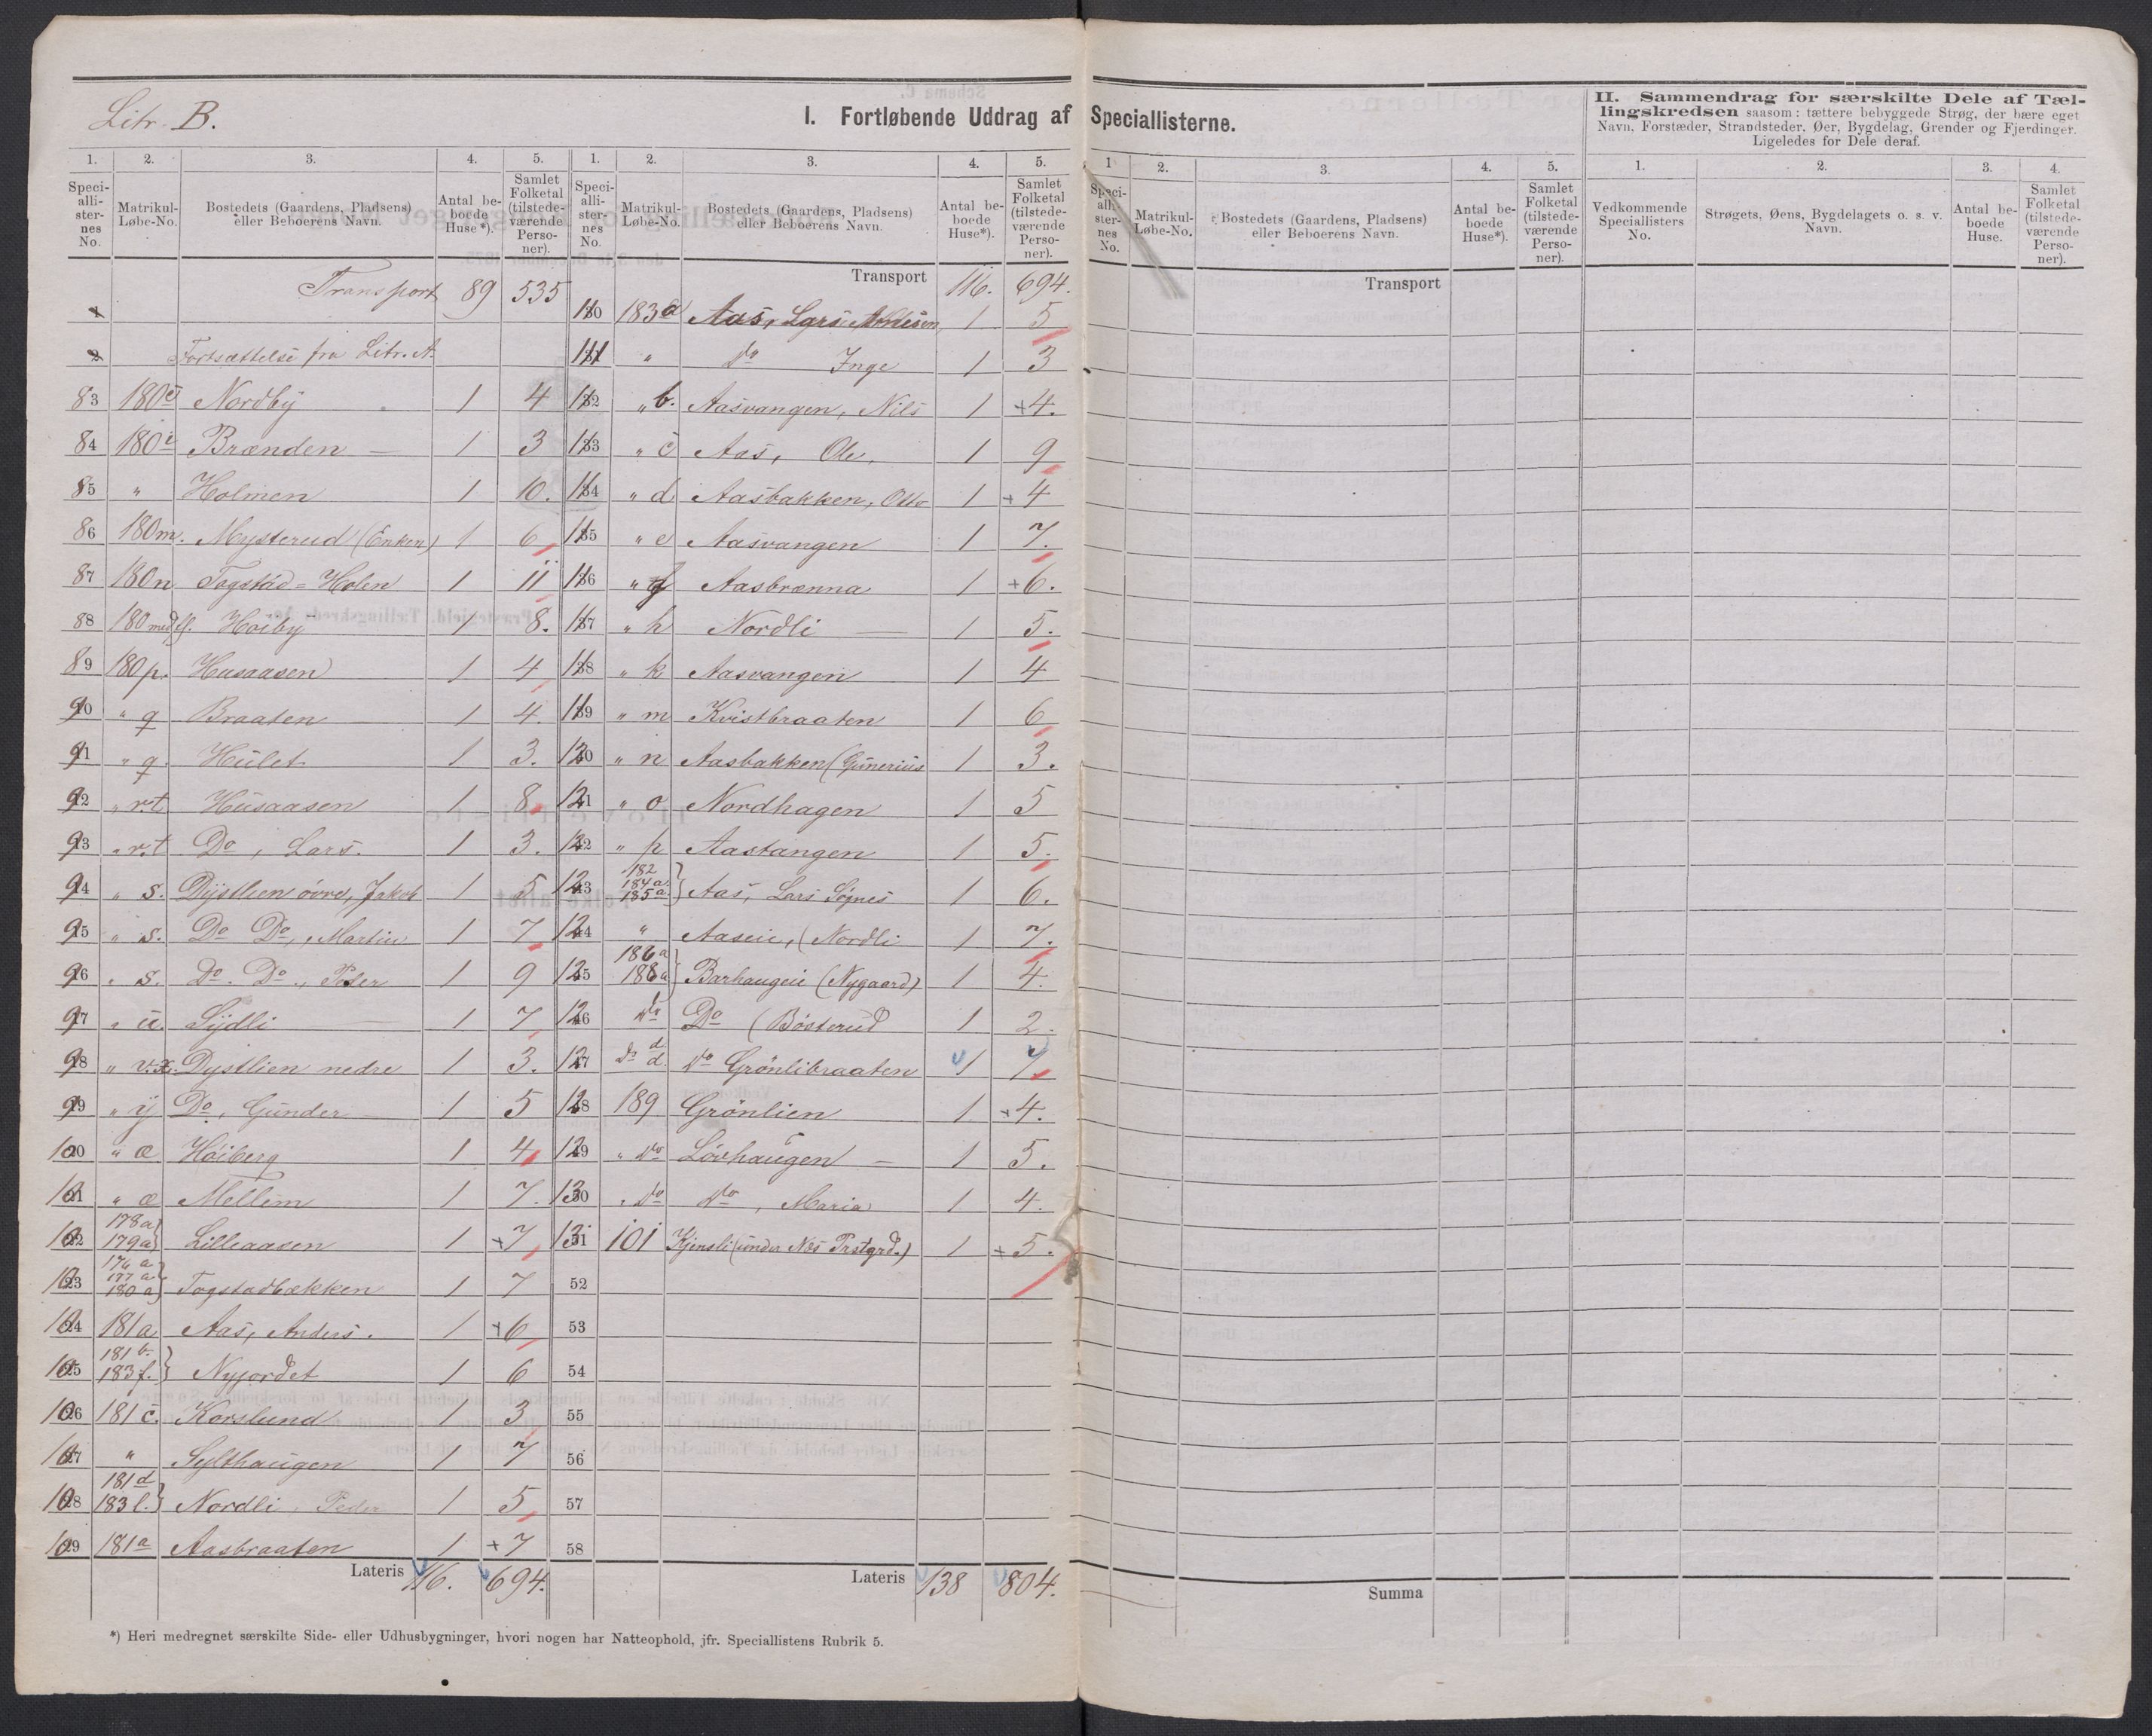 Litr. B.
I. Fortløbende Uddrag af Speciallisterne.
II. Sammendrag for særskilte Dele af Tæl-
lingskredsen saasom: tættere bebyggede Strøg, der bære eget
Navn, Forstæder, Strandsteder, Øer, Bygdelag, Grender og Fjerdinger.
Ligeledes for Dele deraf.
1. 2. 3. 4. 5.
Speci-alli-ster-nes No. Matrikul-Løbe-No. Bostedets (Gaardens, Pladsens) eller Beboerens Navn. Antal be-boede Huse*). Samlet Folketal (tilstede-værende Perso-ner).
Transport 89 535
1
2 Fortsættelse fra Litr. A.
83 180 Nordby 1 4
84 180 i Brænden 1 3
85 " Holmen 1 10.
86 180 m. Mysterud (Enken) 1 6
87 180 n Togstad=Holen 1 11
88 180 Høiby 1 8.
89 180 p. Husaasen 1 4
90 " q Braaten 1 4.
91 " q. Hulet 1 3.
92 " r.t Husaasen 1 8
93 " r.t Do, Lars. 1 3.
94 " s. Dystlien övre, Jakob 1 5
95 " s. Do Do, Martin 1 7
96 " s. Do. Do., Peter 1 9
97 " u. Sydli 1 7
98 " v.x. Dystlien nedre 1 3.
99 " y Do, Gunder 1 5
100 " æ Höiberg 1 4
101 " æ Mellem 1 7.
102 178a 179a } Lilleaasen 1 +7
103 176a 177a 180a } Togstadbækken 1 7
104 181a Aas, Anders. 1 +6
105 181b. 183f. } Nyjordet 1 6
106 181c. Korslund 1 3
107 " Sylthaugen 1 7
108 181d 183l. } Nordli Peder 1 5
109 181a Aasbraaten 1 +7
Lateris 116. 694.
1. 2. 3. 4. 5.
Speci-alli-ster-nes No. Matrikul-Løbe-No. Bostedets (Gaardens, Pladsens) eller Beboerens Navn. Antal be-boede Huse*). Samlet Folketal (tilstede-værende Perso-ner).
Transport 116. 694.
110 183a Aas, Lars 1 5
111 " Do Inge 1 3
112 " b. Aasvangen, Nils 1 +4.
113 " c Aas, Ole, 1 9
114 " d Aasbakken, Otto 1 +4
115 " e Aasvangen 1 7.
116 " g Aasbrænna 1 +6.
117 " h Nordli 1 5.
118 " k Aasvangen 1 4
119 " m Kvistbraaten 1 6
120 " n Aasbakken (Gunerius 1 3.
121 " o Nordhagen 1 5
122 " p Aastangen 1 5.
123 182 184a. 185a. } Aas, Lars Signes 1 6.
124 " Aaseie, (Nordli 1 7.
125 186a 188a } Barhaugeie (Nygaard) 1 4.
126 Do Do (Bösterud 1 2.
127 Do d. Do Grönlibraaten 1 7.
128 189 Grönlien 1 +4.
129 " Do Lövhaugen 1 5.
130 " Do Do, Maria 1 4.
131 101 Kjensli (under Næs Prstgrd.) 1 +5.
52
53
54
55
56
57
58
Lateris 138 804.
1 2. 3. 4. 5.
Speci-alli-ster-nes No. Matrikul-Løbe-No. Bostedets (Gaardens, Pladsens) eller Beboerens Navn. Antal be-boede Huse*). Samlet Folketal (tilstede-værende Perso-ner).
Transport
Summa
1. 2. 3. 4.
Vedkommende Speciallisters No. Strøgets, Øens, Bygdelagets o. s. v. Navn. Antal be-boede Huse. Samlet Folketal (tilstede-værende Perso-ner).
*) Heri medregnet særskilte Side- eller Udhusbygninger, hvori nogen har Natteophold, jfr. Speciallistens Rubrik 5.